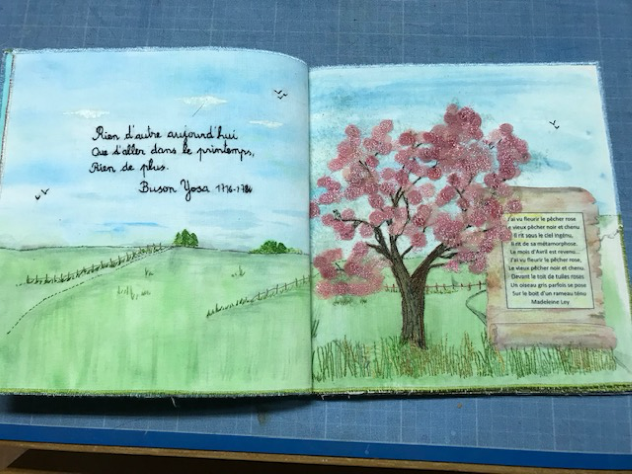 Rien d'autre aujourd'hui
Que d'aller dans le printemps,
Rien de plus.
Buson Yosa 1716-1784
J'ai vu fleurir le pêcher rose
Le vieux pêcher noir et chenu.
Il rit sous le ciel ingénu,
Il rit de sa métamorphose.
Le mois d'Avril est revenu,
J'ai vu fleurir le pêcher rose,
Le vieux pêcher noir et chenu.
Devant le toit de tuiles roses
Un oiseau gris parfois se pose
Sur le bout d'un rameau ténu
Madeleine Ley